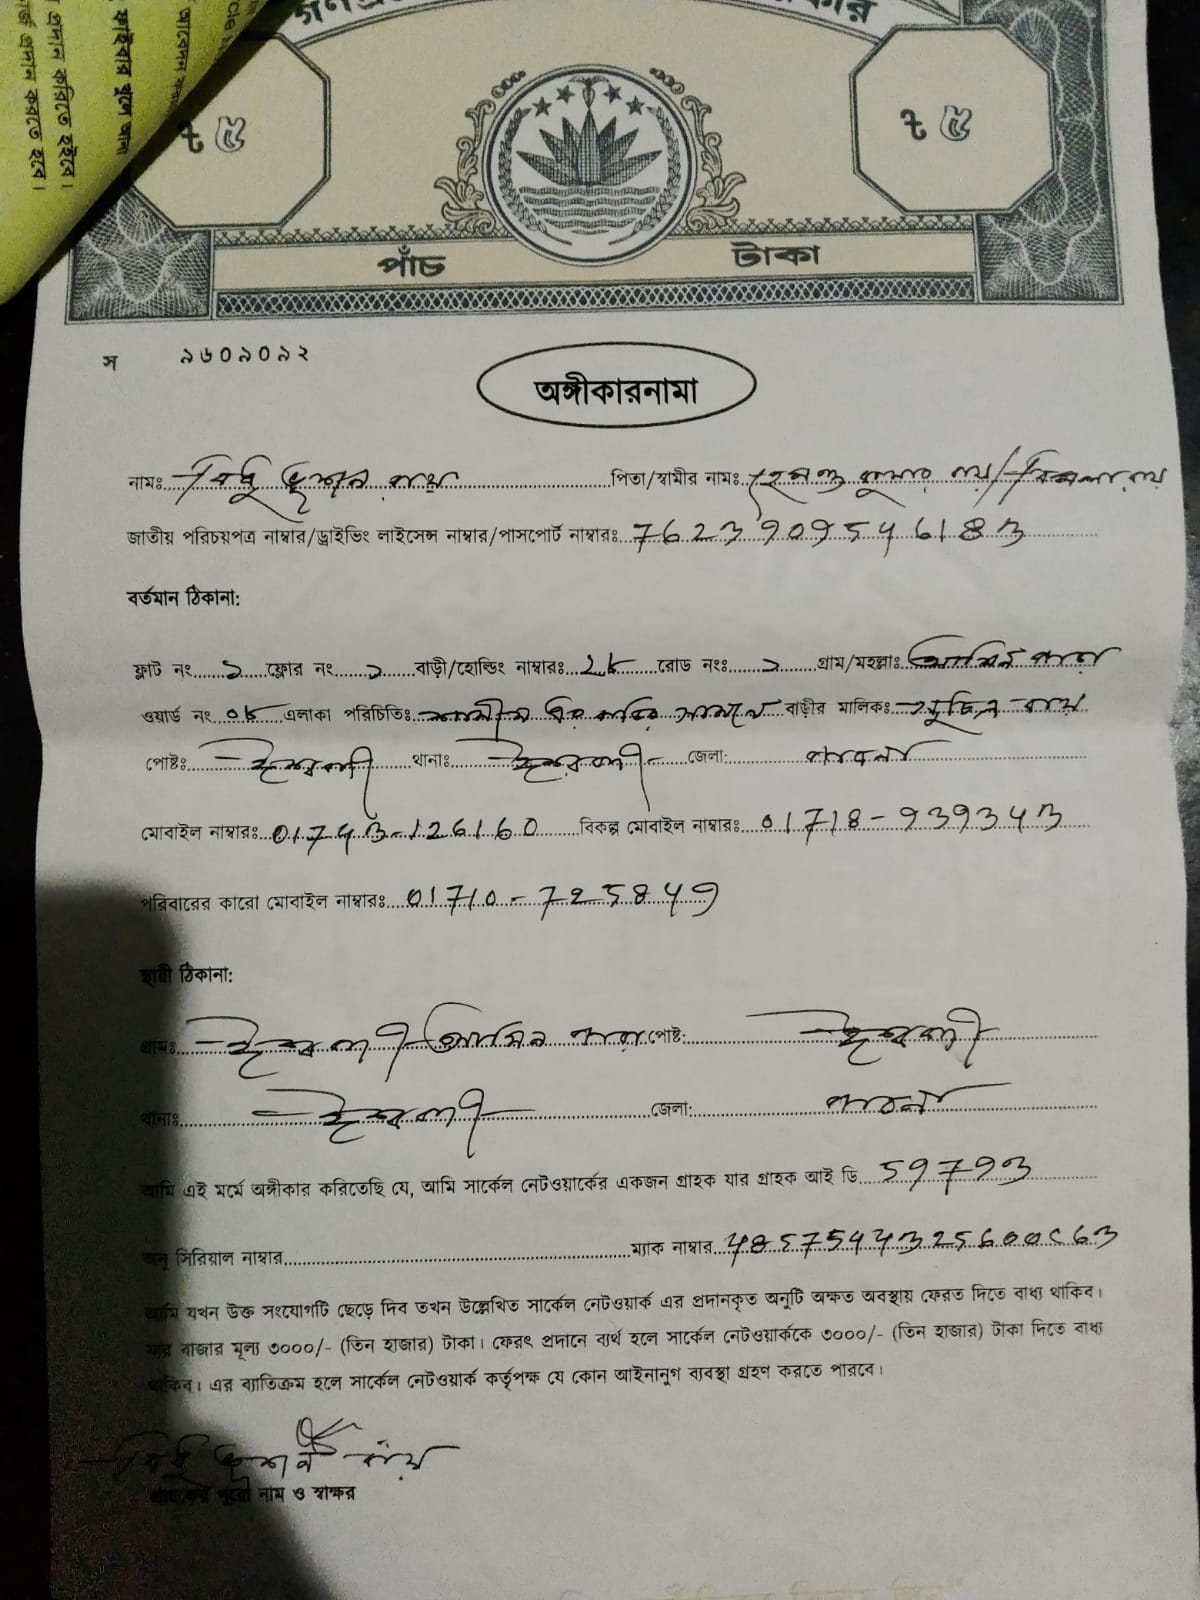 প্রদান করিতে হইবে।
প্রদান করতে হবে।
৳ ৫
৳ ৫
পাঁচ টাকা
স ৯৬০৯০৯২
অঙ্গীকারনামা
নামঃ বিধু ভূষন রায় পিতা/স্বামীর নামঃ কুমার রায়/
জাতীয় পরিচয়পত্র নাম্বার/ড্রাইভিং লাইসেন্স নাম্বার/পাসপোর্ট নাম্বারঃ 7623909546183
বর্তমান ঠিকানা:
ফ্লাট নং ১ ফ্লোর নং ১ বাড়ী/হোল্ডিং নাম্বারঃ রোড নংঃ ১ গ্রাম/মহল্লাঃ পাড়া
ওয়ার্ড নং ০৮ এলাকা পরিচিতিঃ বাড়ীর মালিকঃ রায়
পোষ্টঃ ঈশ্বরদী থানাঃ ঈশ্বরদী জেলা: পাবনা
মোবাইল নাম্বারঃ 01743-126160 বিকল্প মোবাইল নাম্বারঃ 01718-939343
পরিবারের কারো মোবাইল নাম্বারঃ 01710-725849
স্থায়ী ঠিকানা:
গ্রামঃ ঈশ্বরদী পাড়া পোষ্ট: ঈশ্বরদী
থানাঃ ঈশ্বরদী জেলা: পাবনা
আমি এই মর্মে অঙ্গীকার করিতেছি যে, আমি সার্কেল নেটওয়ার্কের একজন গ্রাহক যার গ্রাহক আই ডি 59793
অনু সিরিয়াল নাম্বার ম্যাক নাম্বার
আমি যখন উক্ত সংযোগটি ছেড়ে দিব তখন উল্লেখিত সার্কেল নেটওয়ার্ক এর প্রদানকৃত অনুটি অক্ষত অবস্থায় ফেরত দিতে বাধ্য থাকিব।
যার বাজার মূল্য ৩০০০/- (তিন হাজার) টাকা। ফেরৎ প্রদানে ব্যর্থ হলে সার্কেল নেটওয়ার্ককে ৩০০০/- (তিন হাজার) টাকা দিতে বাধ্য
থাকিব। এর ব্যাতিক্রম হলে সার্কেল নেটওয়ার্ক কর্তৃপক্ষ যে কোন আইনানুগ ব্যবস্থা গ্রহণ করতে পারবে।
বিধু ভূষন রায়
গ্রাহকের পুরো নাম ও স্বাক্ষর